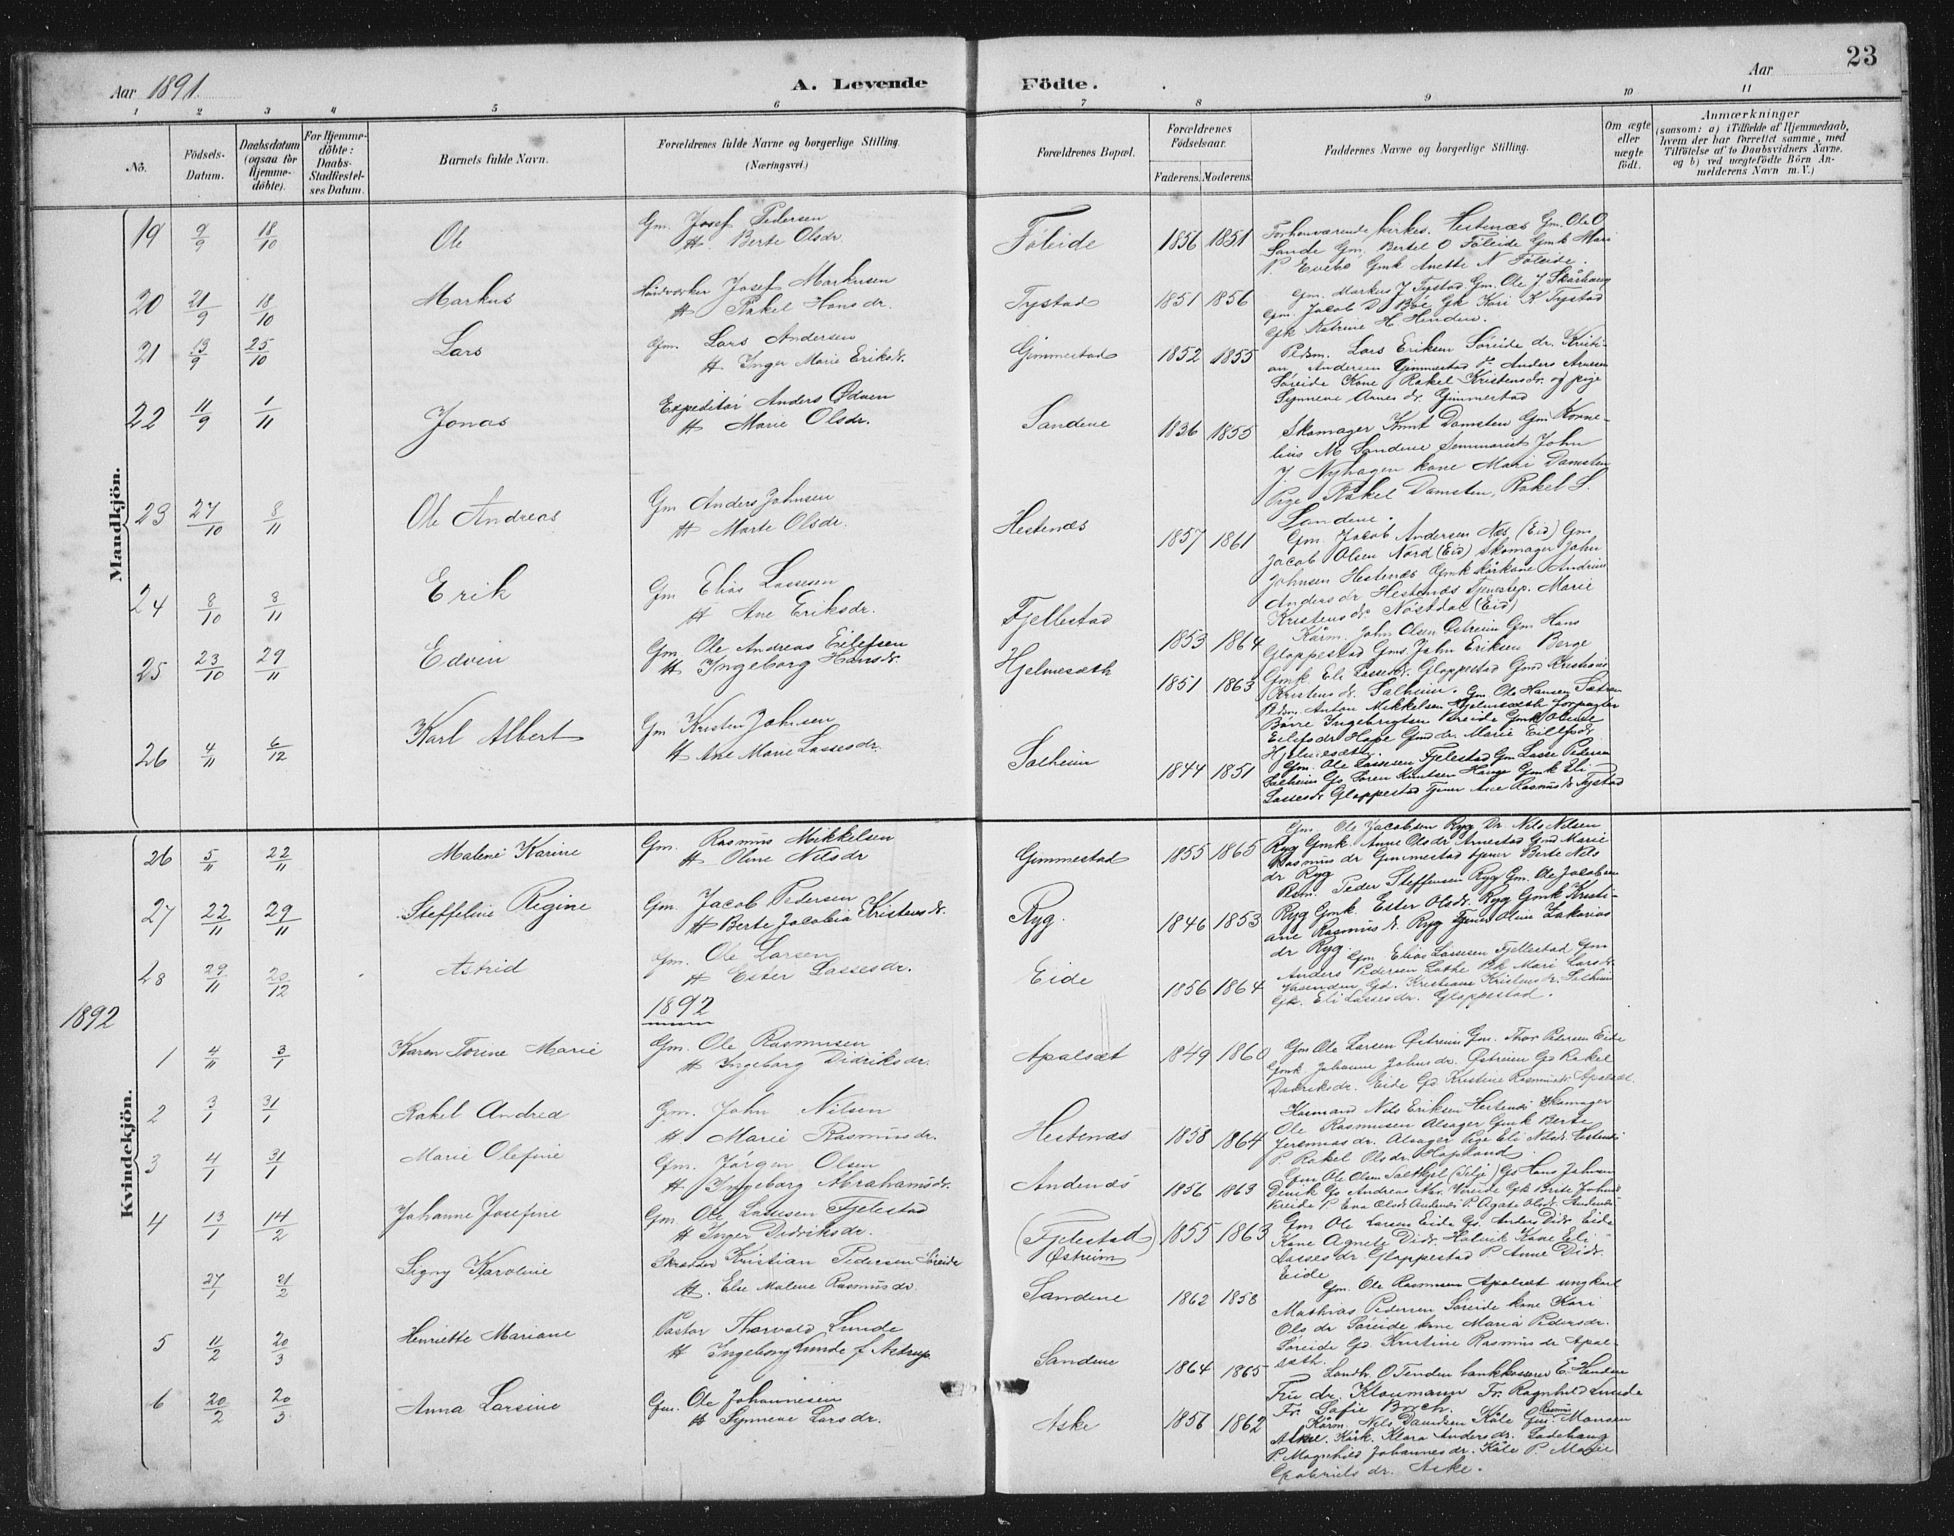 23
Aar 1891
A. Levende Födte.
Aar
1 2 3 4 5 6 7 8 9 10 11
No.
Födsels-Datum.
Daabsdatum (ogsaa for Hjemme-döbte).
For Hjemme-döbte: Daabs-Stadfæstel-ses Datum.
Barnets fulde Navn.
Forældrenes fulde Navne og borgerlige Stilling. (Næringsvei.)
Forældrenes Bopæl.
Forældrenes Födselsaar.
Faderens. Moderens.
Faddernes Navne og borgerlige Stilling.
Om ægte eller uægte födt.
Anmærkninger
(saasom: a) i Tilfælde af Hjemmedaab, hvem der har forrettet samme, med Tilföielse af to Daabsvidners Navne, og b) ved uægtefödte Börn An-melderens Navn m. V.)
Mandkjön.
19 9/9 18/10 Ole Gm. Josef Pedersen
H Berte Olsdr
Föleide 1856 1851
Forhenværende kirkes. Hestenæs Gm. Ole O
Sande Gm. Bertel O Föleide Gmk Mari
P. Evebö Gmk Anette N Föleide.
20 21/9 18/10 Markus Haandværker Josef Markusen
H Rakel Hansdr.
Tystad 1851 1856
Gm. Markus J Tystad Gm. Ole J Skårhaug
Gm. Jacob D Böe Gk Kari K Tystad
Gk Katrine H Henden.
21 13/9 25/10 Lars Gm. Lars Andersen
H Inger Marie Eriksdr.
Gimmestad 1852 1855
Pldsm. Lars Eriksen Söreide dr. Kristi-
an Andersen Gimmestad Anders Arnesen
Söreide Kone Rakel Kristensdr. og pige
Synneve Arnesdr. Gimmestad
22 11/9 1/11 Jonas Expeditör Anders Ödven
H Marie Olsdr.
Sandene 1836 1855
Skomager Knut Damsten Gm Korne-
lius M Sandene Seminarist John
J. Nyhagen kone Mari Damsten
Pige Rakel Damsten, Rakel S.
Sandene.
23 27/10 8/11 Ole Andreas Gm Anders Johnsen
H Marte Olsdr.
Hestenæs 1857 1861
Gm. Jacob Andersen Næs (Eid) Gm
Jacob Olsen Nord (Eid) Skomager John
Johnsen Hestenæs Gmk Kårkone Andrine
Andersdr Hestenæs Tjenestep. Marie
Kristensdr. Nöstdal (Eid)
24 8/10 8/11 Erik Gm Elias Lassesen
H Ane Eriksdr.
Fjellestad 1853 1864
Kårm. John Olsen Östreim Gm Hans
Gloppestad Gms. John Eriksen Berge
Gmk. Eli Lassesdr. Gloppestad Gmd Kristiane
Kristensdr. Salheim.
25 23/10 29/11 Edvin Gm. Ole Andreas Eilefsen
H Ingeborg Hansdr.
Hjelmesæth 1851 1863
Gm. Ole Hansen Sætren
Pldsm. Anton Mikkelsen Hjelmesæth Forpagter
Börre Ingebrigtsen Vereide Gmk Oline
Eilefsdr Hope Gmdr. Marie Eilefsdr.
Hjelmesæth.
26 4/11 6/12 Karl Albert Gm Kristen Johnsen
H Ane Marie Lassesdr.
Salheim 1844 1851
Gm. Ole Lassesen Fjelestad Gm Lasse Pedersen
Salheim Gs. Soren Knutsen Hauge Gmk Eli
Lassesdr Gloppestad Tjener Ane Rasmusdr Tystad
Kvindekjön.
26 5/11 22/11 Malene Karine Gm. Rasmus Mikkelsen
H Oline Nilsdr
Gimmestad 1855 1865
Gm. Ole Jacobsen Ryg Dr. Nils Nilsen
Ryg Gmk. Anne Olsdr Arnestad Gmd Marie
Rasmusdr Gimmestad tjener Berte Nils
dr Ryg
27 22/11 29/11 Steffeline Regine Gm. Jacob Pedersen
H Berte Jacobia Kristensdr.
Ryg. 1846 1853
Pldsm. Peder Steffensen Ryg Gm. Ole Jacobsen
Ryg Gmk. Ester Olsdr. Ryg Gmk Kristi-
ane Rasmusdr. Ryg Tjener Oline Zakarias
dr Ryg.
28 29/11 20/12 Astrid Gm. Ole Larsen
H Ester Lassesdr.
Eide 1856 1864
Gm Elias Lassesen Fjellestad Gm
Anders Pedersen Lothe Pk Mari Larsdr.
Vasenden Gd. Kristiane Kristensdr. Salheim
Gk. Eli Lassesdr. Gloppestad.
1892 1892
1 4/11 3/1 Karen Torine Marie Gm. Ole Rasmusen
H Ingeborg Didriksdr.
Apalsæt 1849 1860
Gm Ole Larsen Östreim Gm. Thor Petersen Eide
Gmk. Johanne Johnsdr. Östreim Gd Rakel
Didriksdr. Eide Gd Kristine Rasmusdr Apalsæt.
2 3/1 31/1 Rakel Andrea Gm. John Nilsen
H Marie Rasmusdr.
Hestenæs 1858 1864
Husmand Nils Eriksen Hestenæs Skomager
Ole Rasmusen Alsager Gmk Berte
Jeremiasdr. Alsager Pige Eli Nilsdr. Hestenæs
P. Rakel Olsdr. Hopland
3 4/1 31/1 Marie Olefine Gm. Jörgen Olsen
H Ingeborg Abrahamsdr.
Andenæs 1856 1863
4 13/1 14/2 Johanne Josefine Gm Ole Lassesen Fjelestad
H Inger Didriksdr.
(Fjelestad) Östreim 1855 1863
Gm Ole Larsen Eide Gs. Anders Didr. Eide
Kone Agnete Didr. Holvik Kone Eli
Lassesdr Gloppestad P Anne Didr.
Eide
27/1 21/2 Signy Karoline Skrædder Kristian Pedersen Söreide
H. Else Malene Rasmusdr.
Sandene 1862 1858
Gm. Ole Rasmusen Apalsæt ungkarl
Mathias Pedersen Söreide kone Kari
Olsdr Söreide kone Maria Pedersdr.
Söreide Gd. Kristine Rasmusdr Apal-
sæth.
5 11/2 20/3 Henriette Mariane Pastor Thorvald Lunde
H Ingeborg Lunde f. Astrup
Sandene 1864 1865
Landh. O Tenden bankkasserer E. Henden
Fru dr. Klaumann Fr. Ragnhild Lunde
Fr. Sofie Broch.
6 20/2 20/3 Anna Larsine Gm. Ole Johannesen
H Synneve Larsdr.
Aske 1856 1862
Kårm. Nils Davidsen Köle Gm. Rasmus Monsen
Aske. Kårk. Klara Andersdr. Ladehaug
P. Magnhild Johannesdr. Köle P. Marie
Gabrielsdr. Aske.